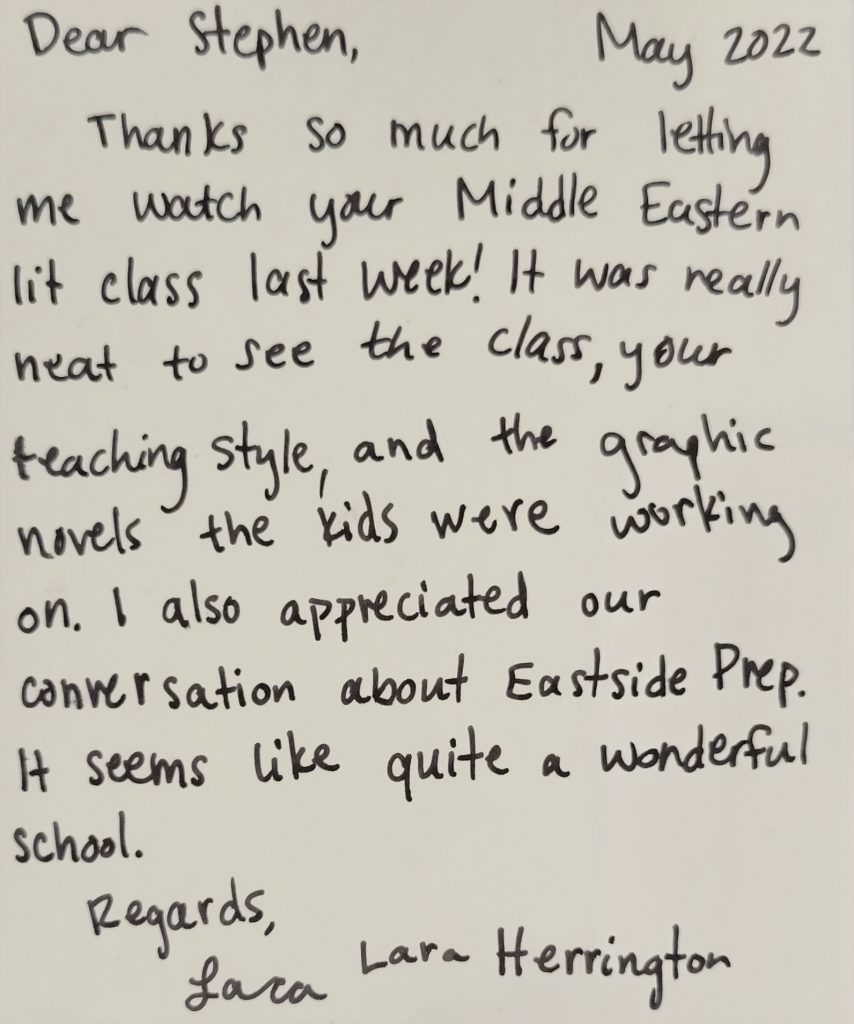 Dear Stephen, May 2022
Thanks so much for letting
me watch your Middle Eastern
lit class last week! It was really
neat to see the class, your
teaching style, and the graphic
novels the kids were working
on. I also appreciated our
conversation about Eastside Prep.
It seems like quite a wonderful
school.
Regards,
Lara Lara Herrington